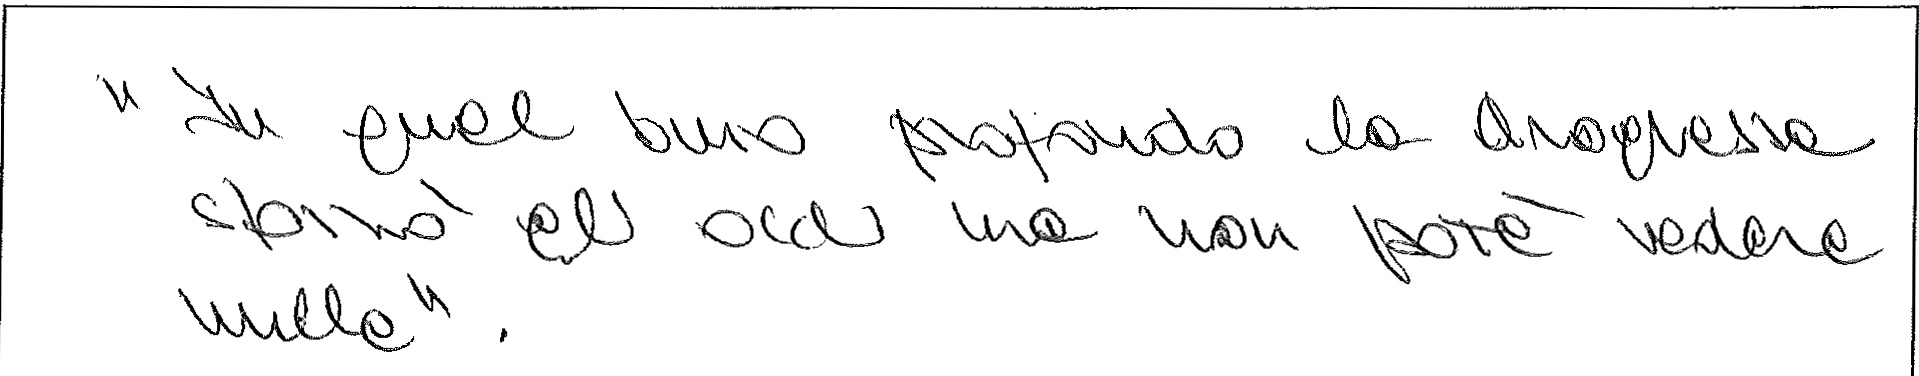 "In quel buio profondo la draghessa
sbarrò gli occhi ma non poté vedere
nulla".